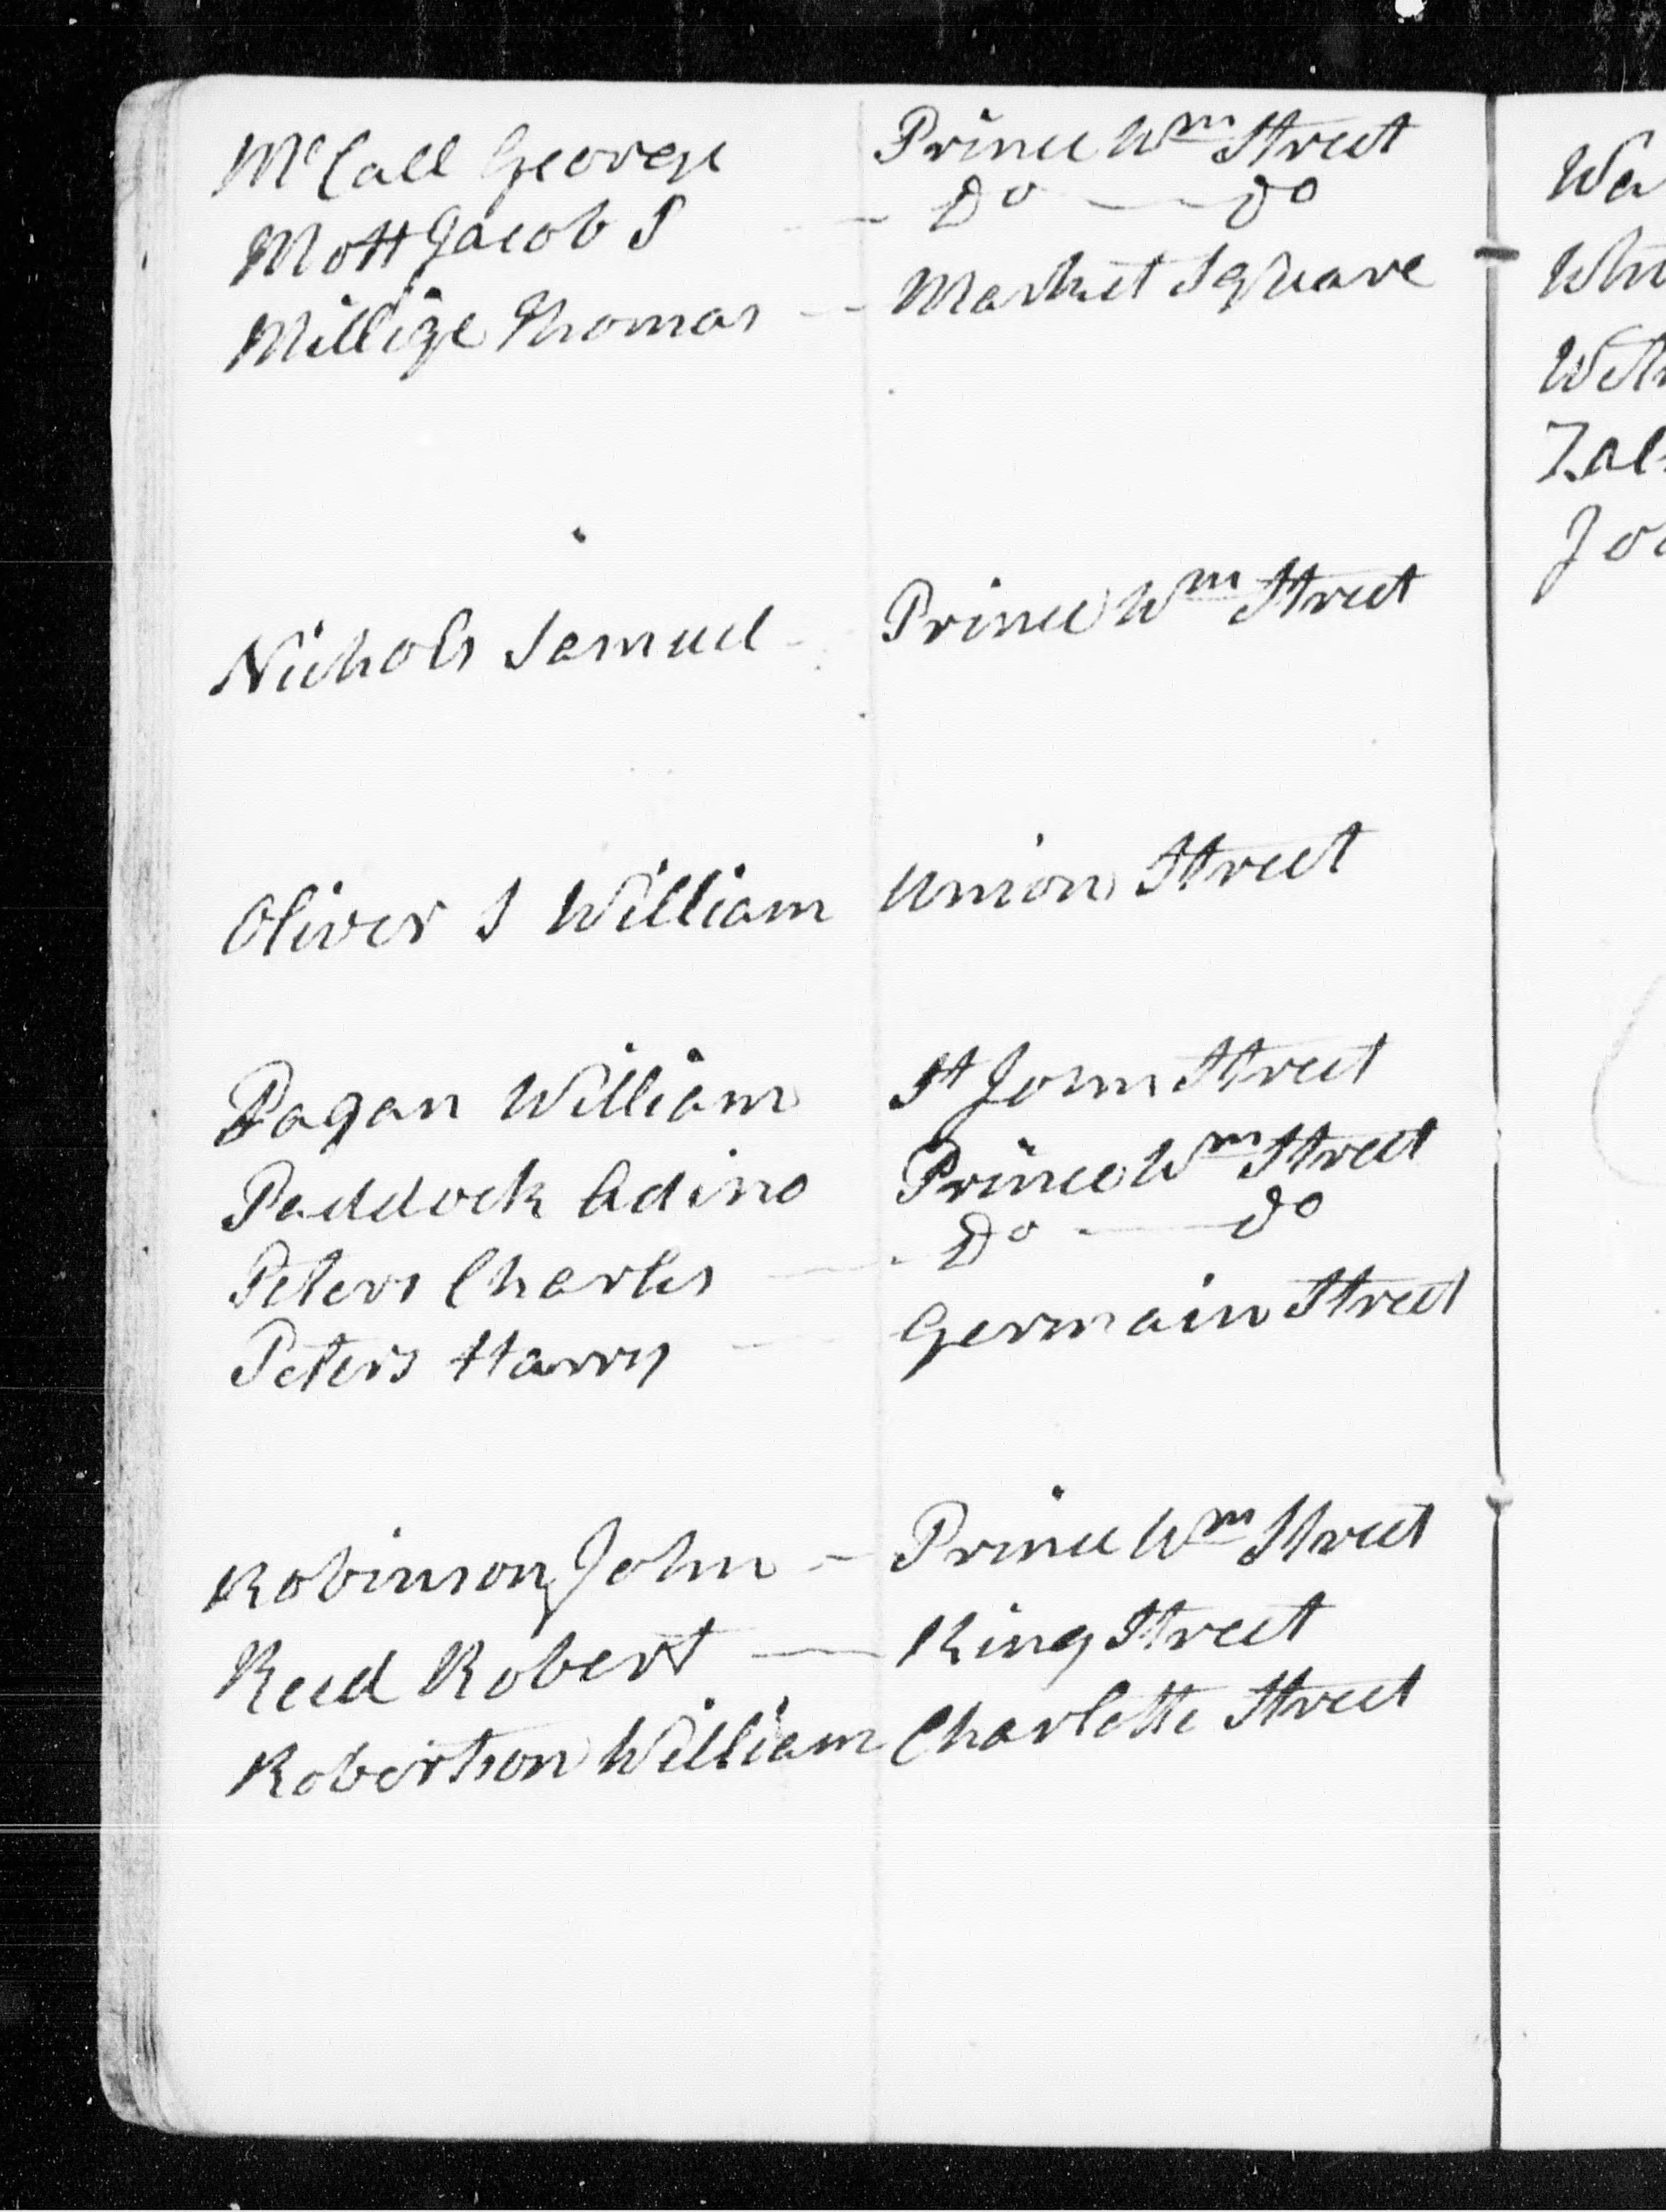 McCall George Prince Wm Street
Mott Jacob S - Do — do
Millige Thomas - Market Square
Nichols Samuel - Prince Wm Street
Oliver S William Union Street
Pagan William St John Street
Paddock Adino Prince Wm Street
Peters Charles - Do — do
Peters Harry - Germain Street
Robinson John - Prince Wm Street
Reed Robert — King Street
Robertson William Charlotte Street